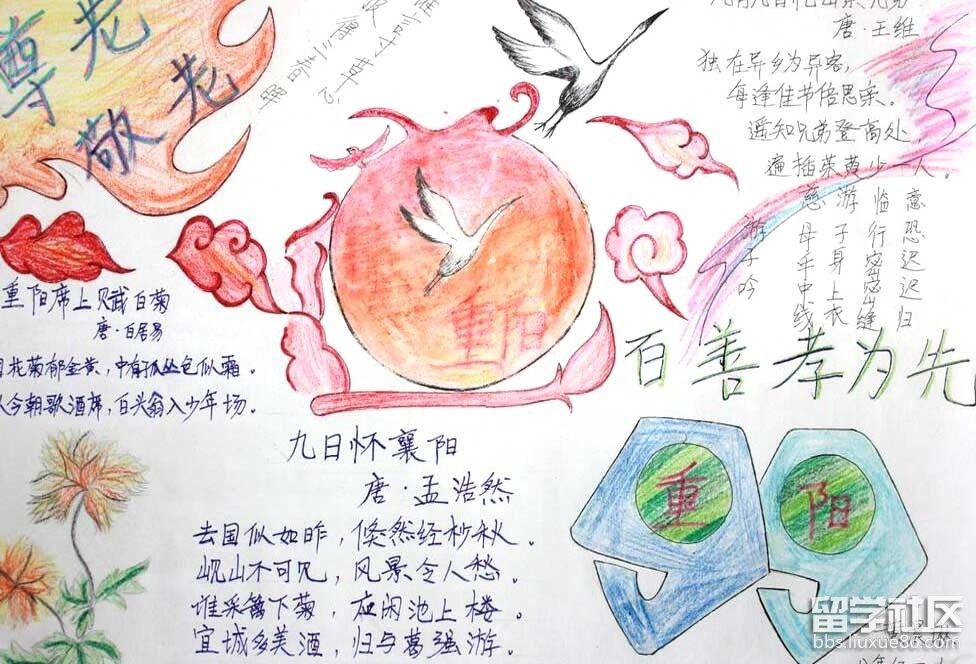 尊老
敬老
寸草心
得三春晖
九月九日忆山东兄弟
唐·王维
独在异乡为异客，
每逢佳节倍思亲。
遥知兄弟登高处，
遍插茱萸少一人。
游子吟
慈母手中线
游子身上衣
临行密密缝
意恐迟迟归
重阳
百善孝为先
重阳席上赋白菊
唐·白居易
花菊郁金黄，中有孤丛色似霜。
今朝歌酒席，白头翁入少年场。
九日怀襄阳
唐·孟浩然
去国似如昨，倏然经杪秋。
岘山不可见，风景令人愁。
谁采篱下菊，应闲池上楼。
宜城多美酒，归与葛强游。
重
阳
留学社区
bbs.liuxue86.com